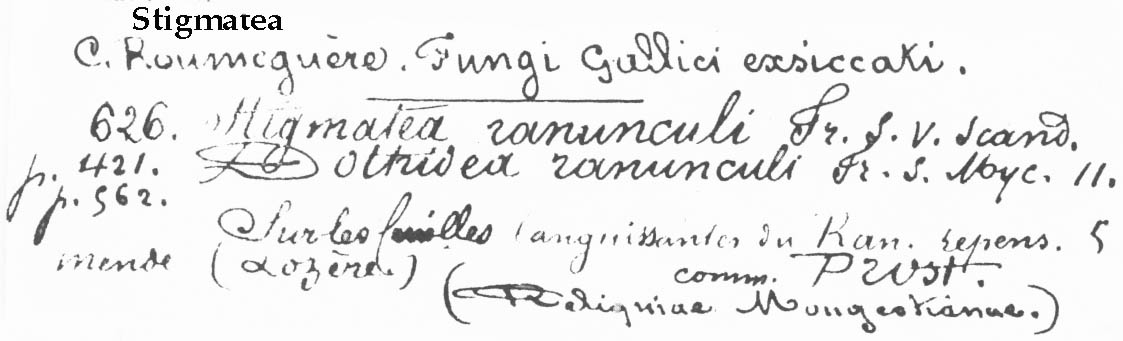 Stigmatea
C. Roumeguère. Fungi Gallici exsiccati.
626. Stigmatea ranunculi Fr. S. V. Scand.
p. 421. Dothidea ranunculi Fr. S. Myc. 11.
p. 562.
Sur les feuilles languissantes du Ran. repens. 5
mende (Lozère.) comm. Prost.
(Reliquiae Mougeotianae.)